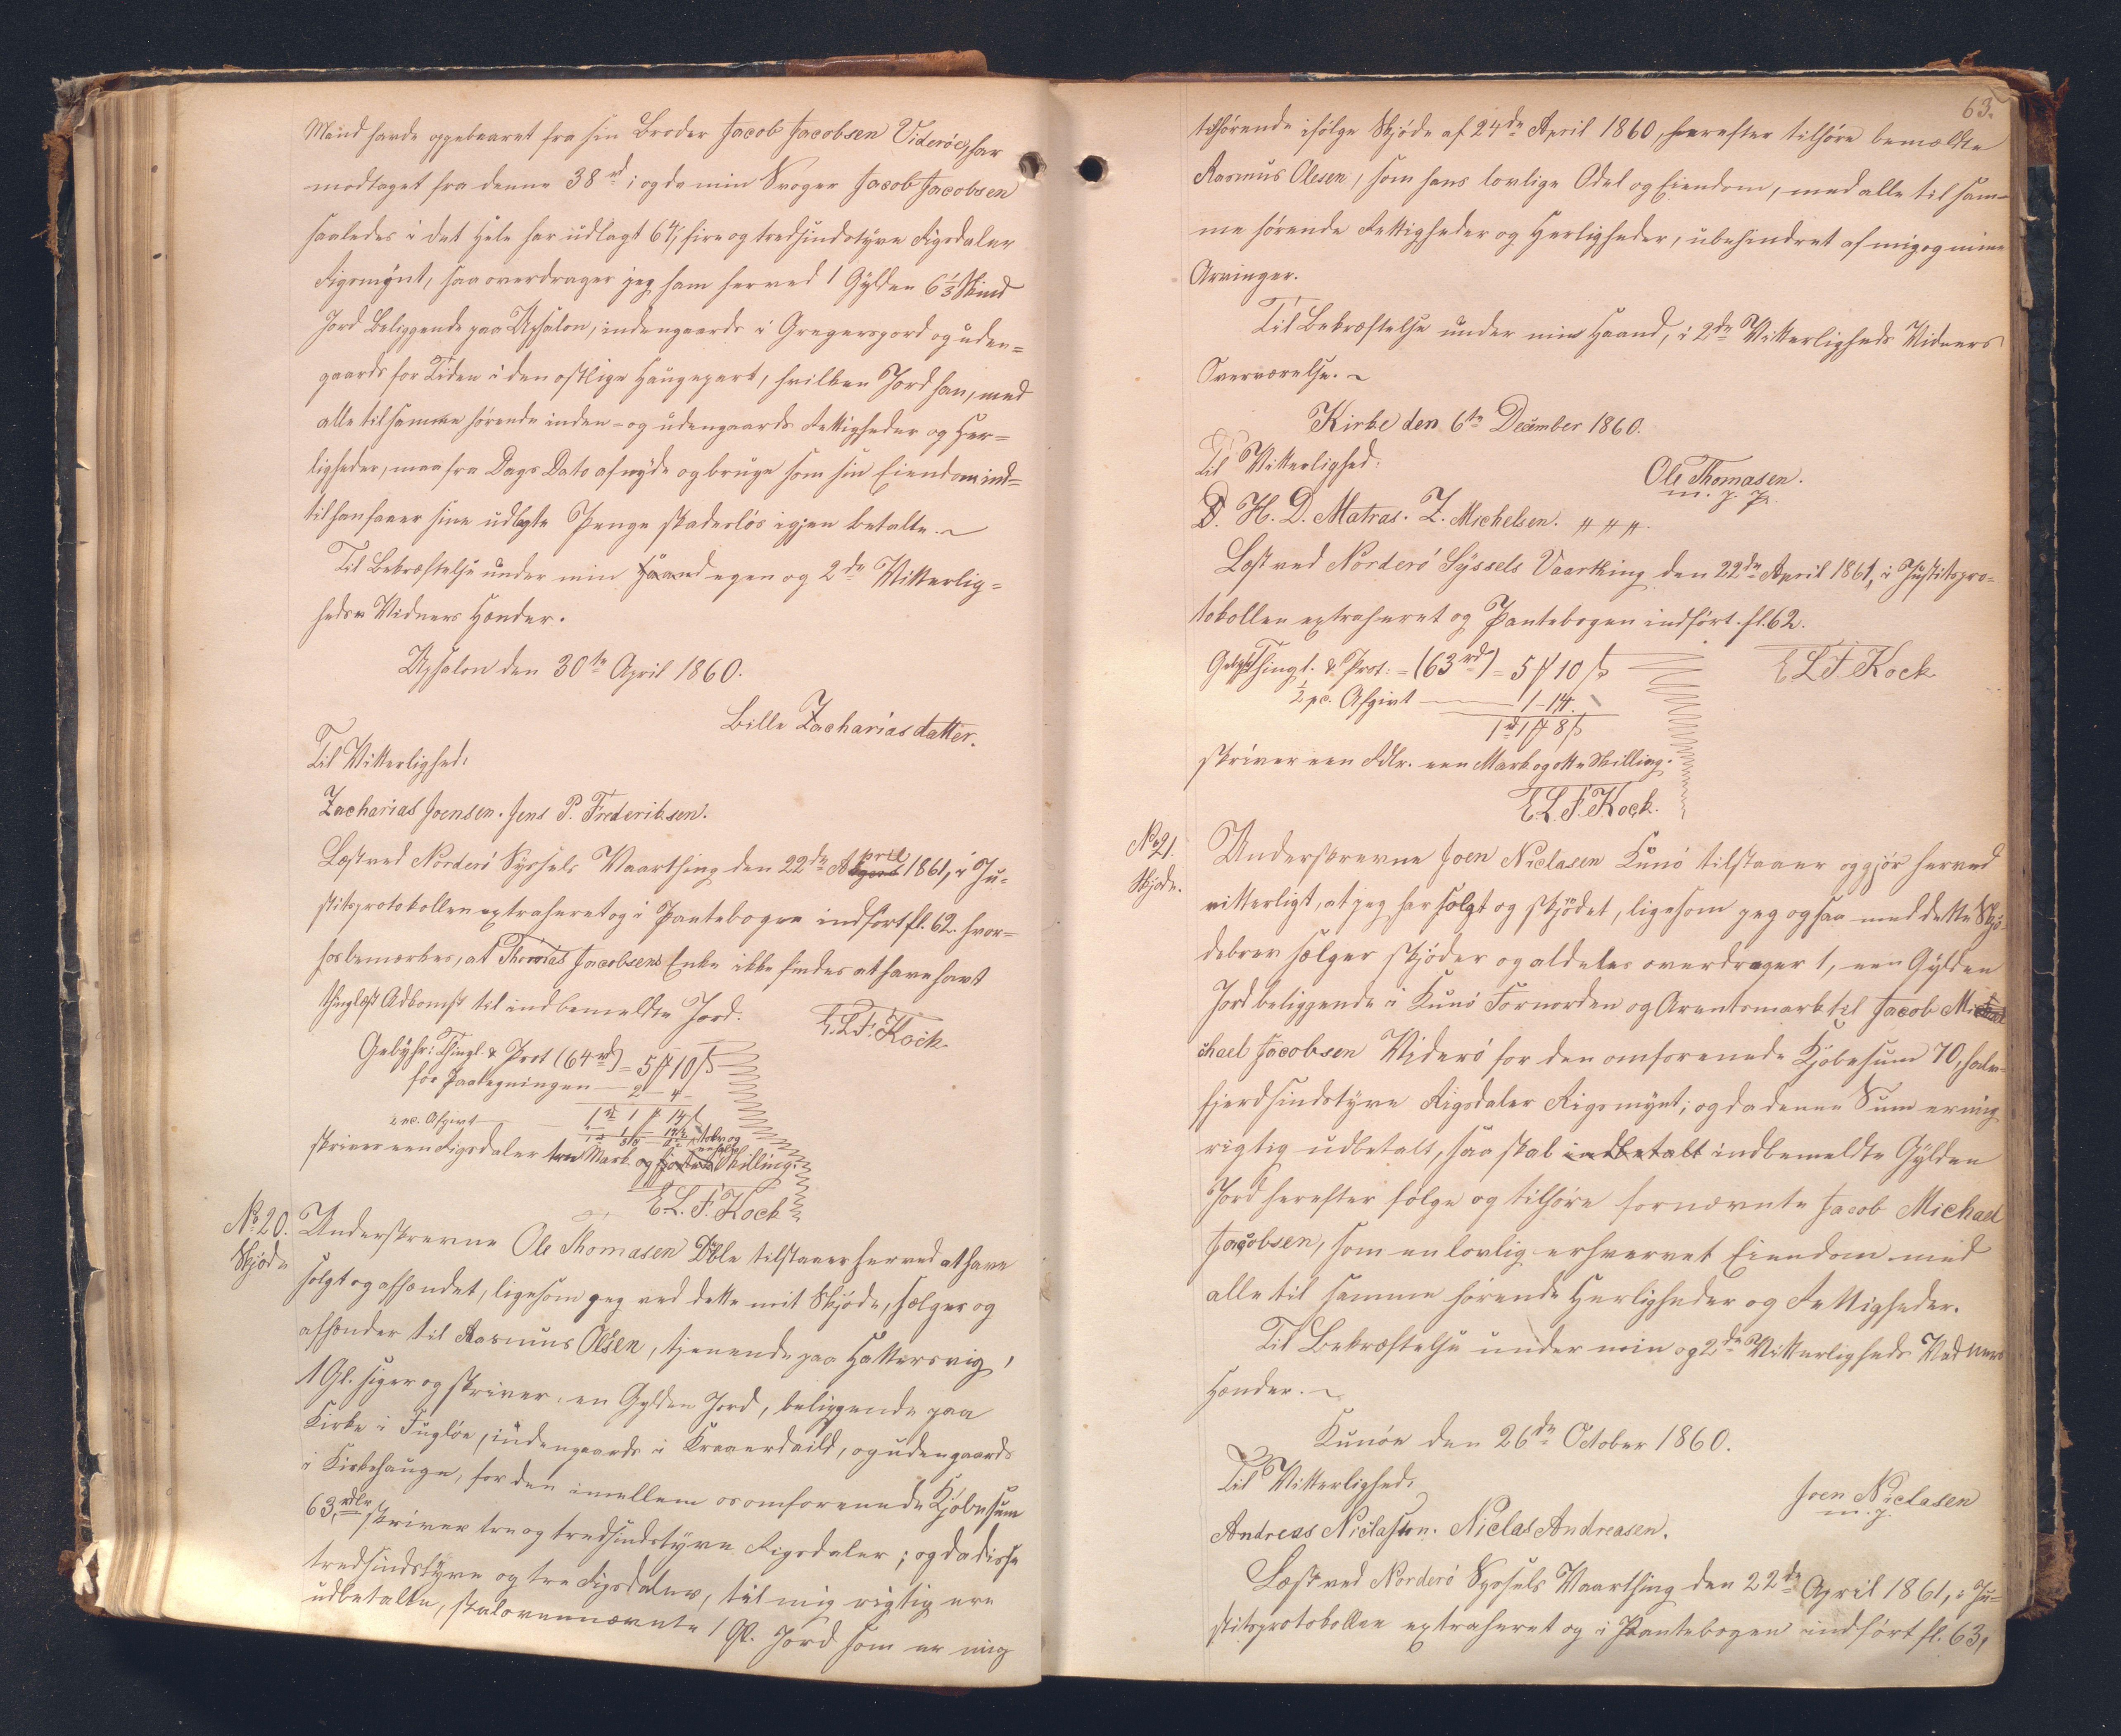 Mand havde oppebaaret fra sin Broder Jacob Jacobsen Viderøe, har
modtaget fra denne 38 rd; og da min Svoger Jacob Jacobsen
saaledes i det Hele har udlagt 64, fire og tredsindstyve Rigsdaler
Rigsmynt, saa overdrager jeg ham herved 1 Gylden 6 1/3 Skind
Jord beliggende paa Upsalon, indengaards i Gregersgord og uden=
gaards for Tiden i den østlige Haugepart, hvilken Jord han, med
alle til samme hørende inden- og udengaards Rettigheder og Her=
ligheder, maa fra Dags Dato afnyde og bruge som sin Eiendom ind=
til han faaer sine udlagte Penge skadesløs igjen betalte. ~
Til Bekræftelse under min Haand egen og 2de Vitterlig=
heds Vidners Hænder.
Upsalon den 30te April 1860.
Bille Zachariasdatter.
Til Vitterlighed:
Zacharias Joensen. Jens P. Frederiksen.
Læst ved Norderø Syssels Vaarthing den 22de April 1861, i Ju=
stitsprotokollen extraheret og i Pantebogen indført fl. 62. hvor=
hos bemærkes, at Thomas Jacobsens Enke ikke findes at have havt
thinglæst Adkomst til indbemeldte Jord.
E.L.F. Kock
Gebyhr: Thingl. & Prot (64 rd) = 5 # 10 ß
for Paategningen — 2 — 4 —
1 rd 1 # 14 ß
½ pc. Afgivt
skriver een Rigsdaler tre Mark og Skilling.
E.L.F. Kock
No 20. Underskrevne Ole Thomasen Døble tilstaaer herved at have
Skjøde solgt og afhændet, ligesom jeg ved dette mit Skjøde, sælger og
afhænder til Rasmus Olsen, tjenende paa Hattersvig,
1 Gl. siger og skriver en Gylden Jord, beliggende paa
Kirke i Fugløe, indengaards i Kraaerdaild, og udengaards
i Kirkehauge, for den imellem os omforenede Kjøbesum
63, rdlr skriver tre og tredsindstyve Rigsdaler; og da disse
tredsindstyve og tre Rigsdaler, til mig rigtig ere
udbetalte, skal ovennævnte 1 Gl. Jord som er mig
63.
tilhørende ifølge Skjøde af 24de April 1860, herefter tilhøre bemældte
Rasmus Olesen, som hans lovlige Odel og Eiendom, med alle til sam=
me hørende Rettigheder og Herligheder, ubehindret af mig og mine
Arvinger.
Til Bekræftelse under min Haand, i 2de Vitterligheds Vidners
Overværelse. ~
Kirke den 6te December 1860.
Til Vitterlighed:
Ole Thomasen.
m. p. P.
D. H. D. Matras. Z. Michelsen. # # #.
Læst ved Norderø Syssels Vaarthing den 22de April 1861, i Justitspro=
tokollen extraheret og Pantebogen indført. fl. 62.
E L F Kock
Gebyhr Thingl. & Prot: = (63 rd) = 5 # 10 ß
½ pc. Afgivt — 1 — 14.
1 rd 1 # 8 ß
skriver een Rdlr. een Mark og otte Skilling.
E.L.F. Kock.
No 21. Underskrevne Joen Niclasen Kunø tilstaaer og gjør herved
Skjøde. vitterligt, at jeg har solgt og skjødet, ligesom jeg ogsaa med dette Skjø=
debrev sælger skjøder og aldeles overdrager 1, een Gylden
Jord beliggende i Kunø Fornorden og Arentsmark til Jacob Mi
chael Jacobsen Viderø for den omforenede Kjøbesum 70, halv=
fjerdsindstyve Rigsdaler Rigsmynt; og da denne Sum er mig
rigtig udbetalt, saa skal indbetalt indbemeldte Gylden
Jord herefter følge og tilhøre fornævnte Jacob Michael
Jacobsen, som en lovlig erhvervet Eiendom med
alle til samme hørende Herligheder og Rettigheder.
Til Bekræftelse under min og 2de Vitterligheds Vidners
Hænder. ~
Kunøe den 26de October 1860.
Til Vitterlighed:
Joen Niclasen
m. p.
Andreas Niclassen. Niclas Andreasen.
Læst ved Norderø Syssels Vaarthing den 22de April 1861, i Ju=
stitsprotokollen extraheret og i Pantebogen indført fl. 63,